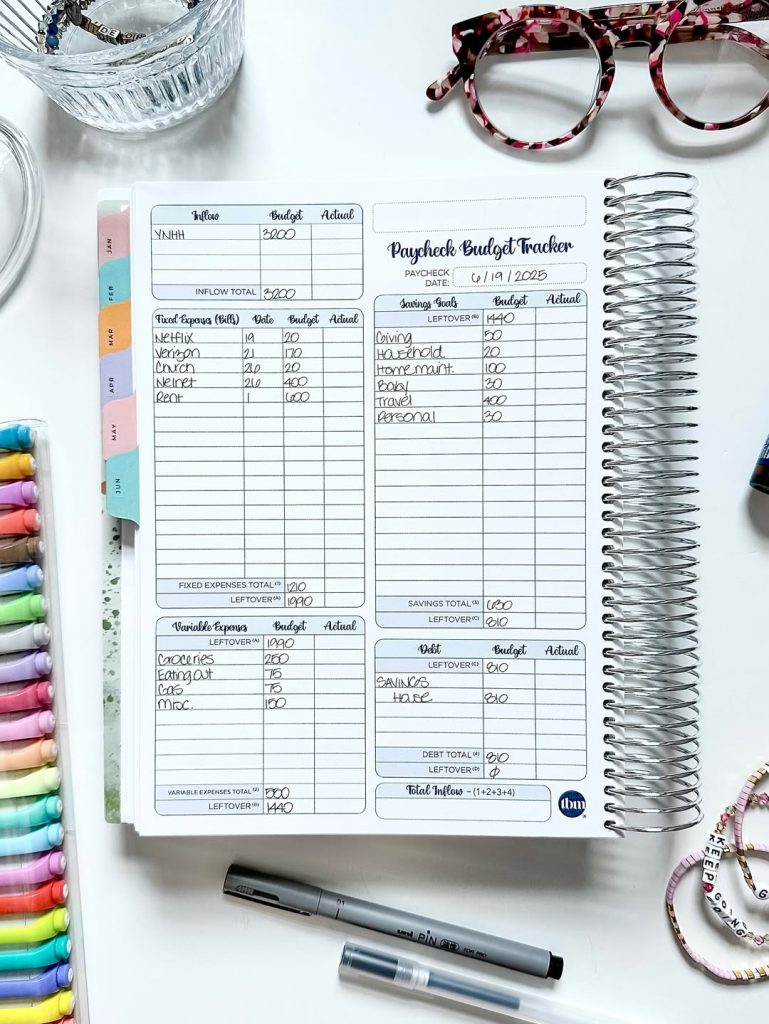 JAN
FEB
MAR
APR
MAY
JUN
Inflow Budget Actual
YNHH 3200
INFLOW TOTAL 3200
Fixed Expenses (Bills) Date Budget Actual
Netflix 19 20
Verizon 21 170
Church 26 20
Nelnet 26 400
Rent 1 600
FIXED EXPENSES TOTAL (1) 1210
LEFTOVER (A) 1990
Variable Expenses Budget Actual
LEFTOVER (A) 1990
Groceries 250
Eating out 75
Gas 75
Misc. 150
VARIABLE EXPENSES TOTAL (2) 550
LEFTOVER (B) 1440
Paycheck Budget Tracker
PAYCHECK DATE: 6/19/2025
Savings Goals Budget Actual
LEFTOVER (B) 1440
Giving 50
Household 20
Home maint. 100
Baby 30
Travel 400
Personal 30
SAVINGS TOTAL (3) 630
LEFTOVER (C) 810
Debt Budget Actual
LEFTOVER (C) 810
SAVINGS
House 810
DEBT TOTAL (4) 810
LEFTOVER (D) Ø
Total Inflow - (1+2+3+4)
tbm
01
uni PIN FOR PRO
KEEP GOING